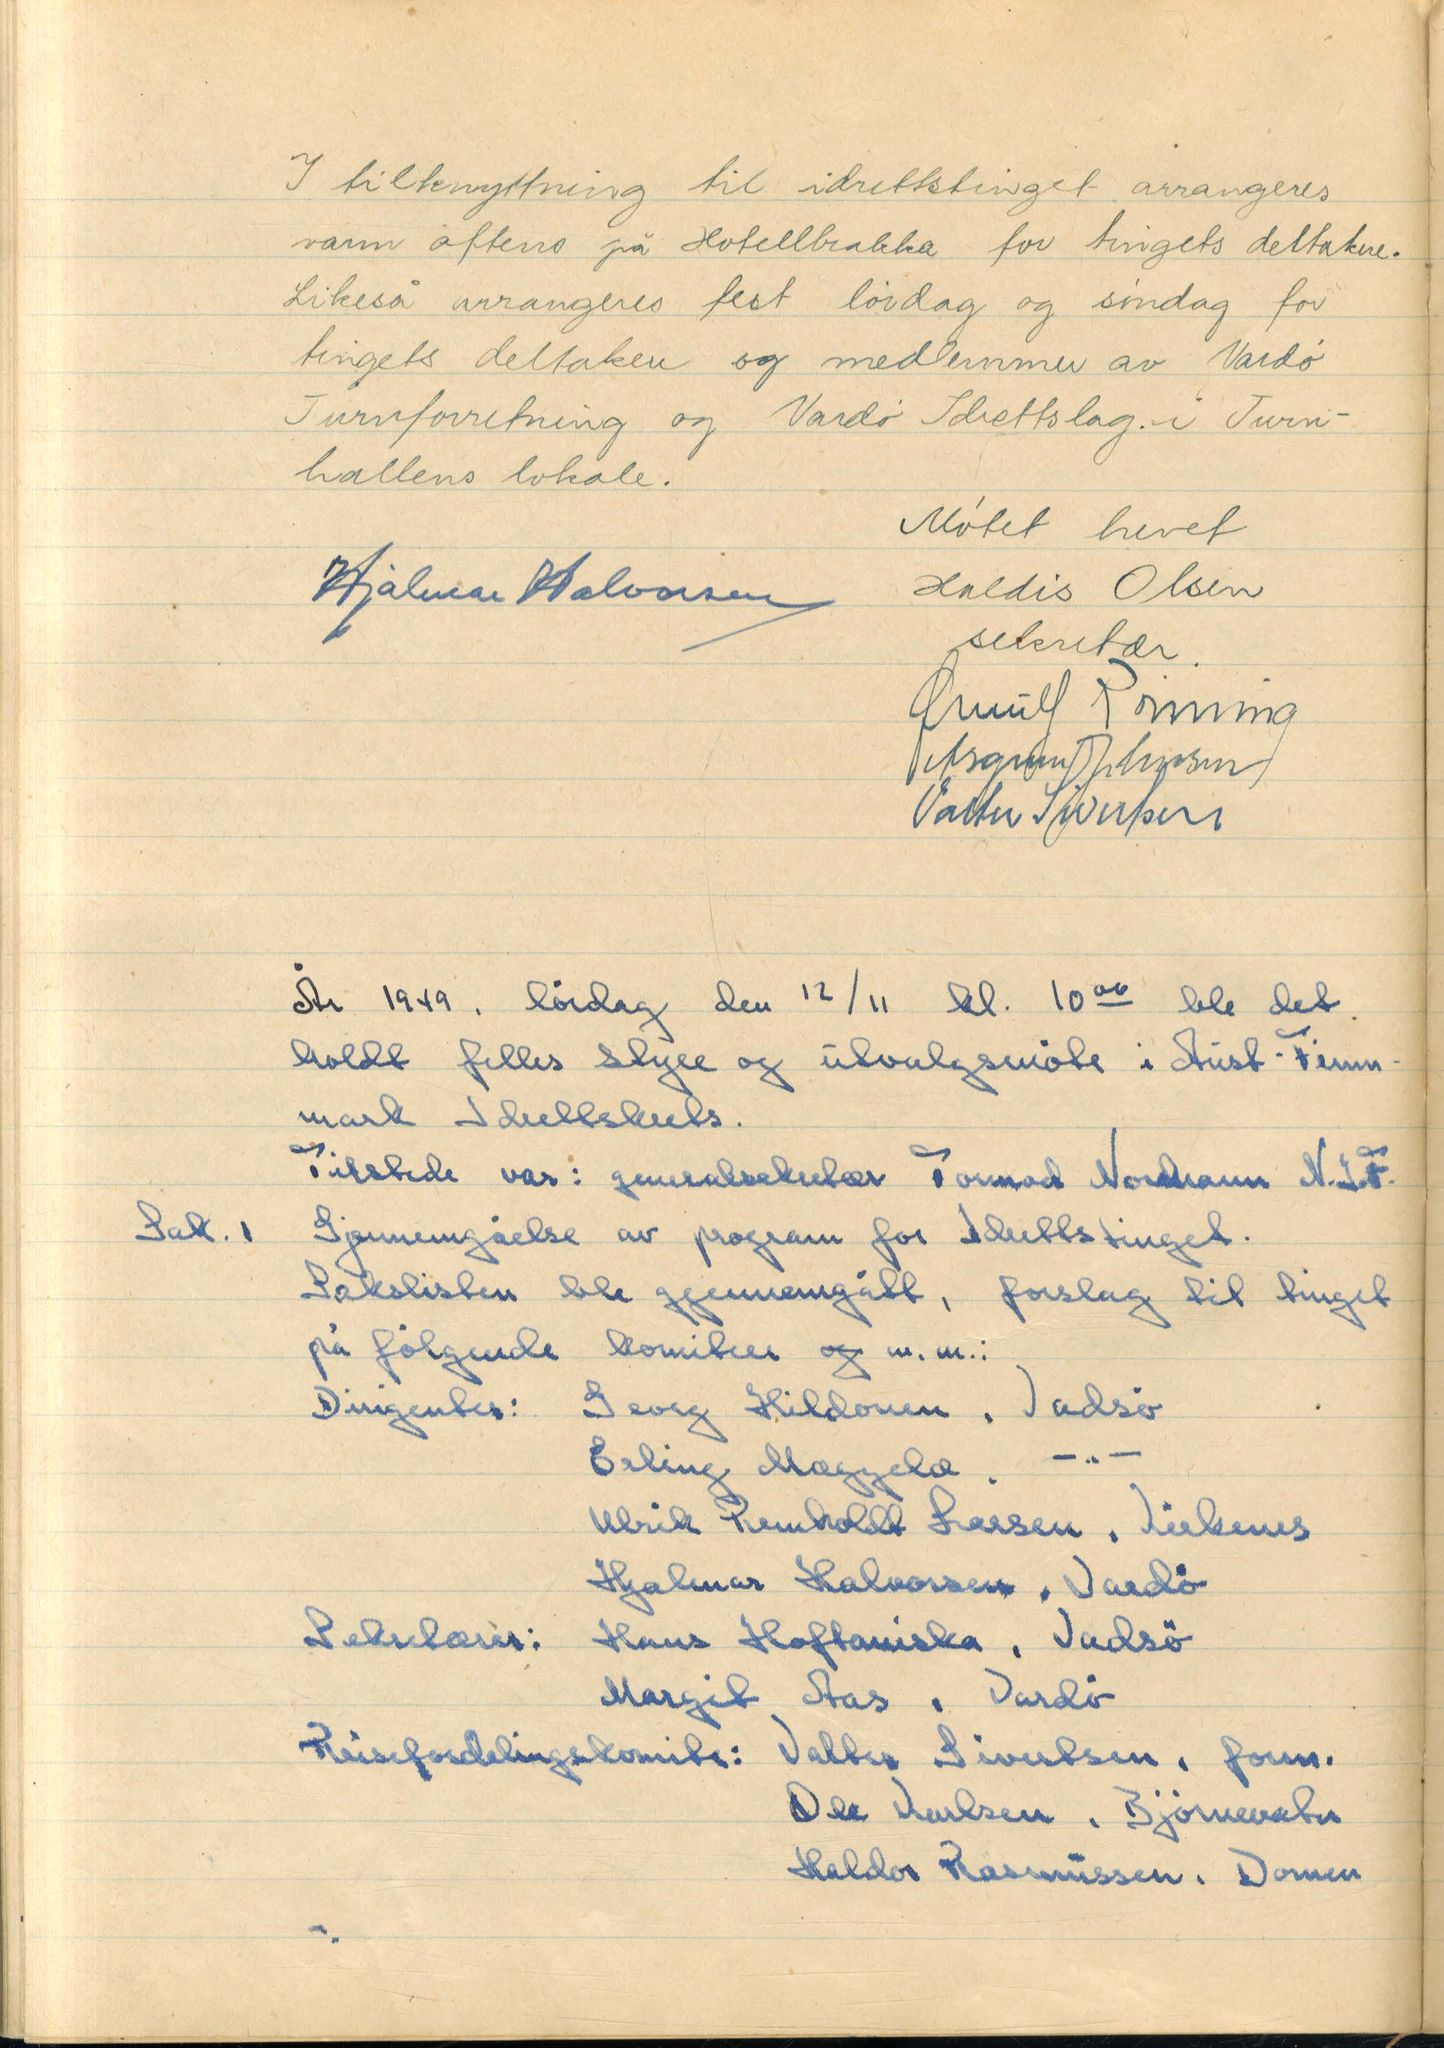 I tilknyttning til idrettstinget arrangeres
varm aftens på Hotellbrakka for tingets deltakere.
Likeså arrangeres fest lördag og söndag for
tingets deltakere og medlemmer av Vardö
Turnforretning og Vardö Idrettslag i Turn-
hallens lokale.
Mötet hevet
Hjalmar Halvorsen Haldis Olsen
sekretær.
Ørnulf Rönning
Valter Sivertsen
År 1949, lördag den 12/11 kl. 10 00 ble det
holdt felles styre og utvalgsmöte i Aust-Finn-
mark Idrettskrets.
Tilstede var: generalsekretær Tormod Normann N.I.F.
Sak. 1 Gjennemgåelse av program for Idrettstinget.
Sakslisten ble gjennemgått, forslag til tinget
på fölgende komiteer og m.m.:
Dirigenter: Georg Hildonen, Vadsö
Erling Mæggelæ, -"-
Ulrik Remholdt Larsen, Kirkenes
Hjalmar Halvorsen, Vardö
Sekretærer: Hans Hoftaniska, Vadsö
Margit Aas, Vardö
Reisefordelingskomite: Valter Sivertsen, form.
Ole Karlsen, Björnevatn
Haldor Rasmussen, Domen